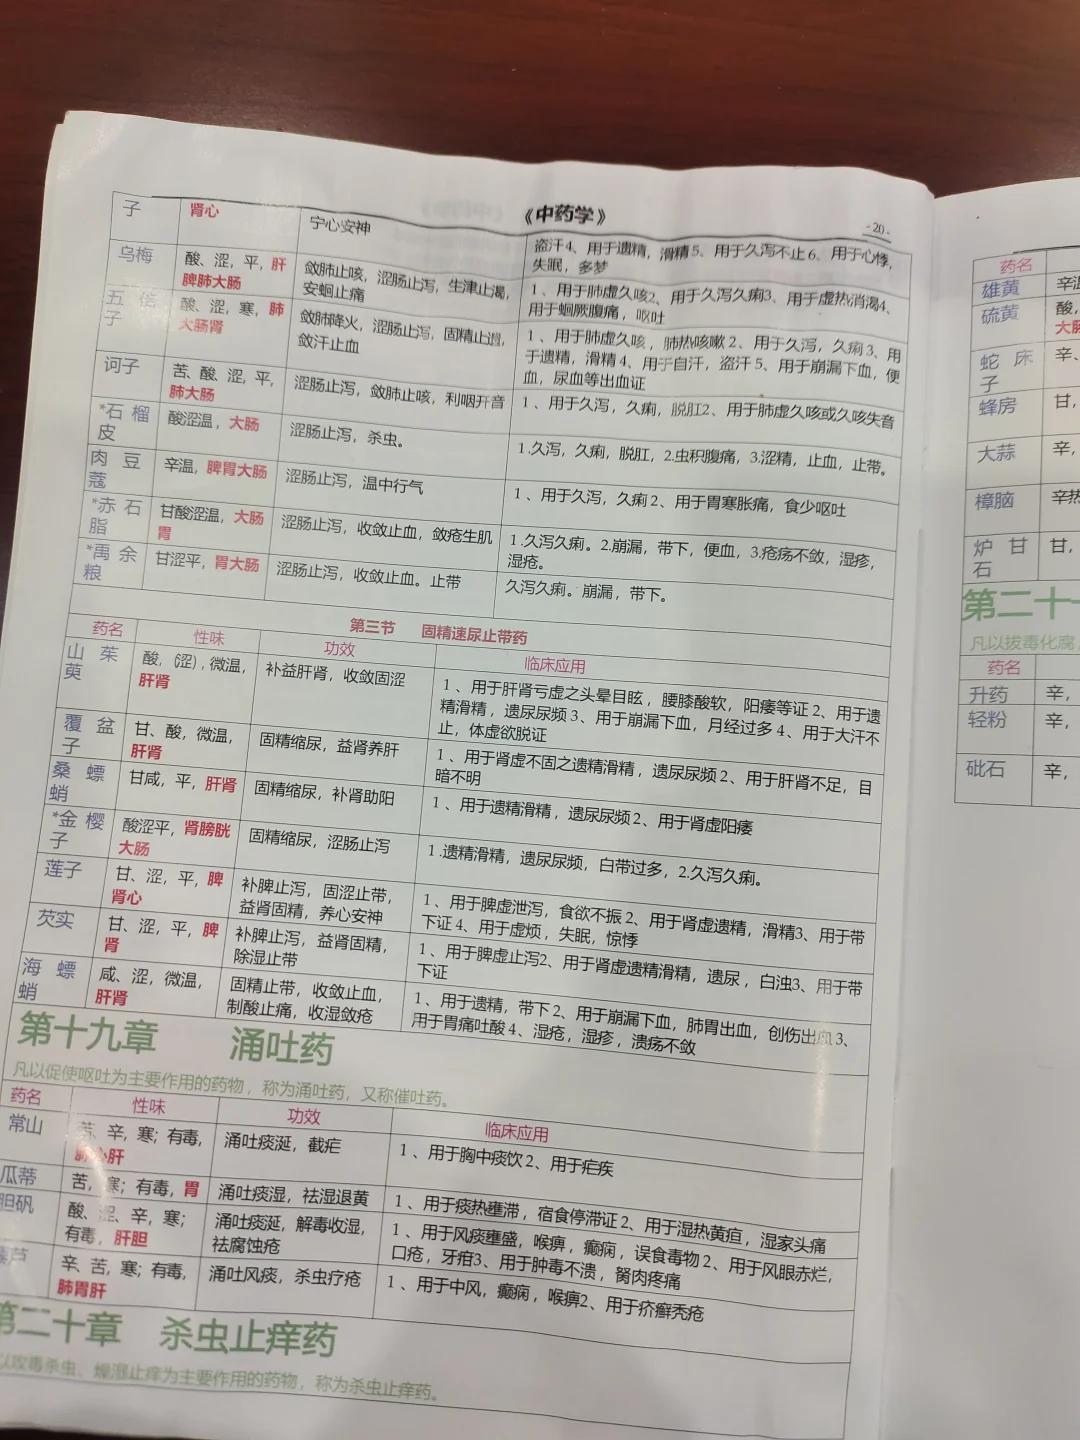 《中药学》
- 20 -
子 肾心 宁心安神 盗汗4、用于遗精，滑精5、用于久泻不止6、用于心悸，
失眠，多梦
乌梅 酸，涩，平，肝
脾肺大肠
敛肺止咳，涩肠止泻，生津止渴，
安蛔止痛
1、用于肺虚久咳2、用于久泻久痢3、用于虚热消渴4、
用于蛔厥腹痛，呕吐
五倍
子
酸、涩，寒，肺
大肠肾
敛肺降火，涩肠止泻，固精止遗，
敛汗止血
1、用于肺虚久咳，肺热咳嗽2、用于久泻，久痢3、用
于遗精，滑精4、用于自汗，盗汗5、用于崩漏下血，便
血，尿血等出血证
诃子 苦、酸、涩，平，
肺大肠
涩肠止泻，敛肺止咳，利咽开音
1、用于久泻，久痢，脱肛2、用于肺虚久咳或久咳失音
*石榴
皮
酸涩温，大肠
涩肠止泻，杀虫。
1.久泻，久痢，脱肛，2.虫积腹痛，3.涩精，止血，止带。
肉豆
蔻
辛温，脾胃大肠
涩肠止泻，温中行气
1、用于久泻，久痢2、用于胃寒胀痛，食少呕吐
*赤石
脂
甘酸涩温，大肠
胃
涩肠止泻，收敛止血，敛疮生肌
1.久泻久痢。2.崩漏，带下，便血，3.疮疡不敛，湿疹，
湿疮。
*禹余
粮
甘涩平，胃大肠
涩肠止泻，收敛止血。止带
久泻久痢。崩漏，带下。
第三节 固精速尿止带药
药名 性味 功效 临床应用
山茱
萸
酸，(涩)，微温，
肝肾
补益肝肾，收敛固涩
1、用于肝肾亏虚之头晕目眩，腰膝酸软，阳痿等证2、用于遗
精滑精，遗尿尿频3、用于崩漏下血，月经过多4、用于大汗不
止，体虚欲脱证
覆盆
子
甘、酸，微温，
肝肾
固精缩尿，益肾养肝
1、用于肾虚不固之遗精滑精，遗尿尿频2、用于肝肾不足，目
暗不明
桑螵
蛸
甘咸，平，肝肾
固精缩尿，补肾助阳
1、用于遗精滑精，遗尿尿频2、用于肾虚阳痿
*金樱
子
酸涩平，肾膀胱
大肠
固精缩尿，涩肠止泻
1.遗精滑精，遗尿尿频，白带过多，2.久泻久痢。
莲子 甘、涩，平，脾
肾心
补脾止泻，固涩止带，
益肾固精，养心安神
1、用于脾虚泄泻，食欲不振2、用于肾虚遗精，滑精3、用于带
下证4、用于虚烦，失眠，惊悸
芡实 甘、涩，平，脾
肾
补脾止泻，益肾固精，
除湿止带
1、用于脾虚止泻2、用于肾虚遗精滑精，遗尿，白浊3、用于带
下证
海螵
蛸
咸、涩，微温，
肝肾
固精止带，收敛止血，
制酸止痛，收湿敛疮
1、用于遗精，带下2、用于崩漏下血，肺胃出血，创伤出血3、
用于胃痛吐酸4、湿疮，湿疹，溃疡不敛
第十九章 涌吐药
凡以促使呕吐为主要作用的药物，称为涌吐药，又称催吐药。
药名 性味 功效 临床应用
常山 苦、辛，寒；有毒，
肺心肝
涌吐痰涎，截疟
1、用于胸中痰饮2、用于疟疾
瓜蒂 苦，寒；有毒，胃 涌吐痰湿，祛湿退黄 1、用于痰热壅滞，宿食停滞证2、用于湿热黄疸，湿家头痛
胆矾 酸、涩、辛，寒；
有毒，肝胆
涌吐痰涎，解毒收湿，
祛腐蚀疮
1、用于风痰壅盛，喉痹，癫痫，误食毒物2、用于风眼赤烂，
口疮，牙疳3、用于肿毒不溃，胬肉疼痛
芦 辛、苦，寒；有毒，
肺胃肝
涌吐风痰，杀虫疗疮
1、用于中风，癫痫，喉痹2、用于疥癣秃疮
第二十章 杀虫止痒药
以攻毒杀虫、燥湿止痒为主要作用的药物，称为杀虫止痒药。
药名
雄黄 辛温
硫黄 酸，
大肠
蛇床
子
辛、
蜂房 甘，
大蒜 辛，
樟脑 辛热
炉甘
石
甘，
第二十一
凡以拔毒化腐
药名
升药 辛，
轻粉 辛，
砒石 辛，